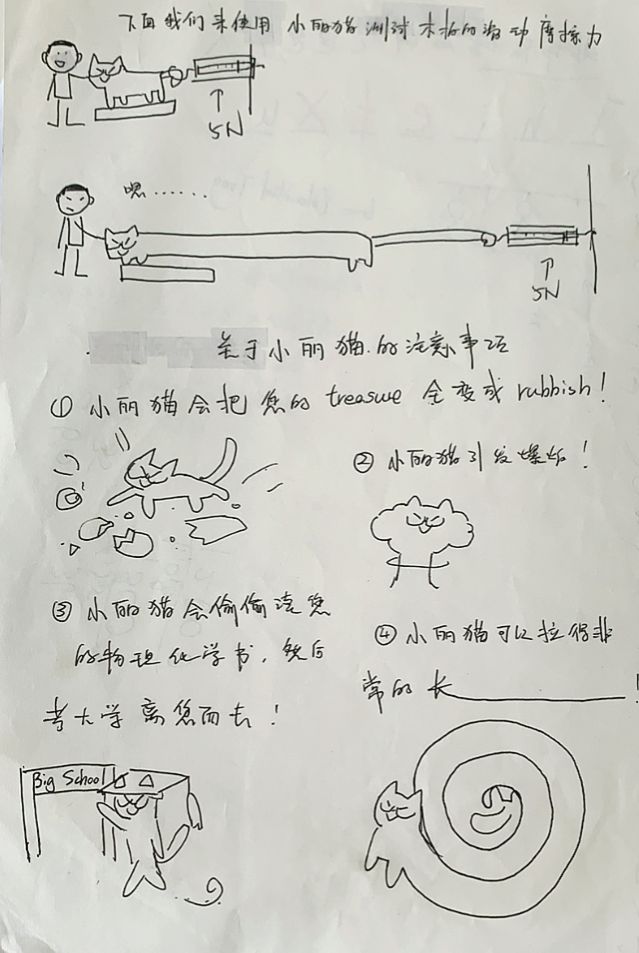 下面我们来使用 小丽猫 测试 木板的滑动摩擦力
5N
嗯……
5N
关于小丽猫的注意事项
① 小丽猫会把您的 treasure 全变成 rubbish！
② 小丽猫引发爆炸！
③ 小丽猫会偷偷读您
的物理化学书，然后
考大学离您而去！
④ 小丽猫可以拉得非
常的 长————！
Big School